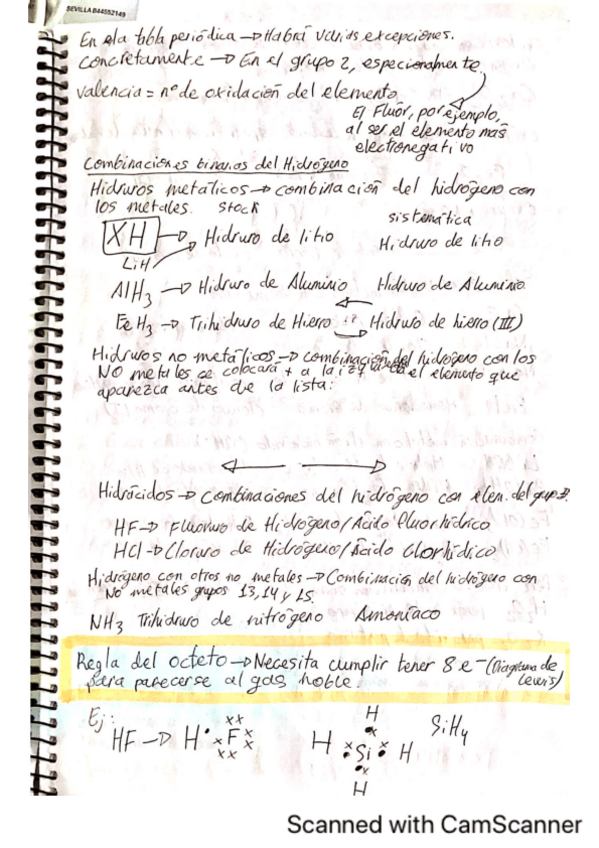 SEVILLA B44552149
En ela tabla periódica → Habrá varias excepciones.
Concretamente → En el grupo 2, especionalmente
valencia = nº de oxidación del elemento
El Fluór, por ejemplo,
al ser el elemento más
electronegativo
Combinaciones binarias del Hidrógeno
Hidruros metálicos → combinación del hidrógeno con
los metales. Stock
sistemática
XH → Hidruro de litio Hidruro de litio
LiH
AlH3 → Hidruro de Aluminio Hidruro de Aluminio
FeH3 → Trihidruro de Hierro Hidruro de hierro (III)
Hidruros no metálicos → combinación del hidrógeno con los
NO metales se colocará + a la izquierda el elemento que
aparezca antes de la lista:
Hidrácidos → Combinaciones del hidrógeno con elem. del grupo
HF → Fluoruro de Hidrógeno/Ácido Fluorhídrico
HCl → Cloruro de Hidrógeno/Ácido Clorhídico
Hidrógeno con otros no metales → Combinación del hidrógeno con
No metales grupos 13, 14 y 15.
NH3 Trihidruro de nitrógeno Amoníaco
Regla del octeto → Necesita cumplir tener 8 e- (Diagrama de
para parecerse al gas noble. Lewis)
Ej:
HF → H F
H
H Si H SiH4
H
Scanned with CamScanner